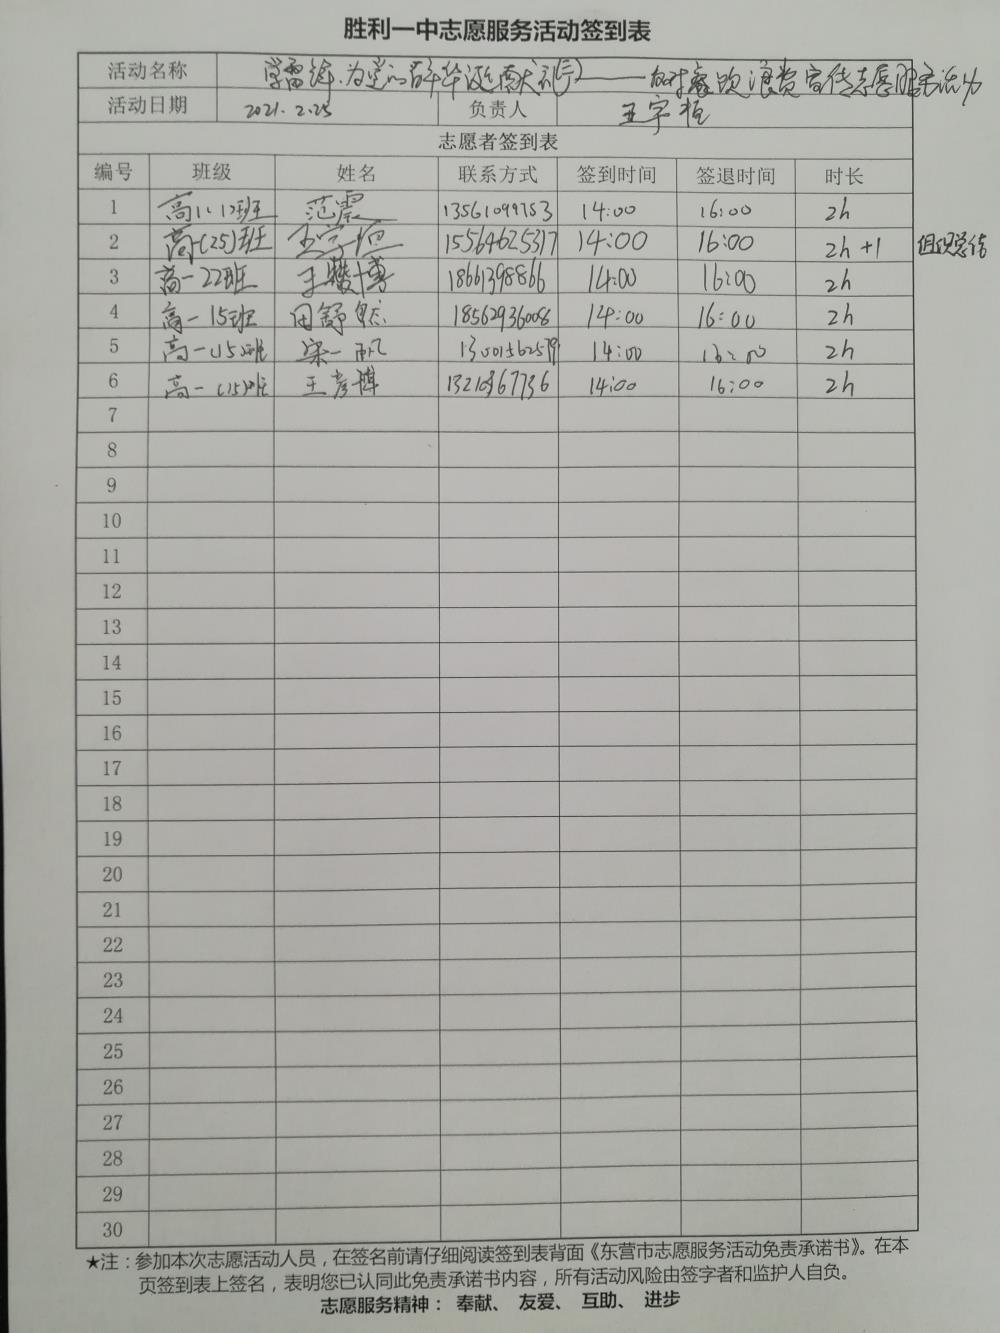 胜利一中志愿服务活动签到表
活动名称 学雷锋.为党的百年华诞献礼(三)——反对餐饮浪费宣传志愿服务活动
活动日期 2021.2.25 负责人 王宇恒
志愿者签到表
编号 班级 姓名 联系方式 签到时间 签退时间 时长
1 高1.12班 范震 13561099753 14:00 16:00 2h
2 高一(25)班 王宇恒 15564625317 14:00 16:00 2h +1 组织总结
3 高一22班 王 博 18661398866 14:00 16:00 2h
4 高一15班 田舒 18562936008 14:00 16:00 2h
5 高一(15)班 宋一帆 14:00 16:00 2h
6 高一(15)班 王彦博 14:00 16:00 2h
7
8
9
10
11
12
13
14
15
16
17
18
19
20
21
22
23
24
25
26
27
28
29
30
★注：参加本次志愿活动人员，在签名前请仔细阅读签到表背面《东营市志愿服务活动免责承诺书》。在本
页签到表上签名，表明您已认同此免责承诺书内容，所有活动风险由签字者和监护人自负。
志愿服务精神： 奉献、 友爱、 互助、 进步